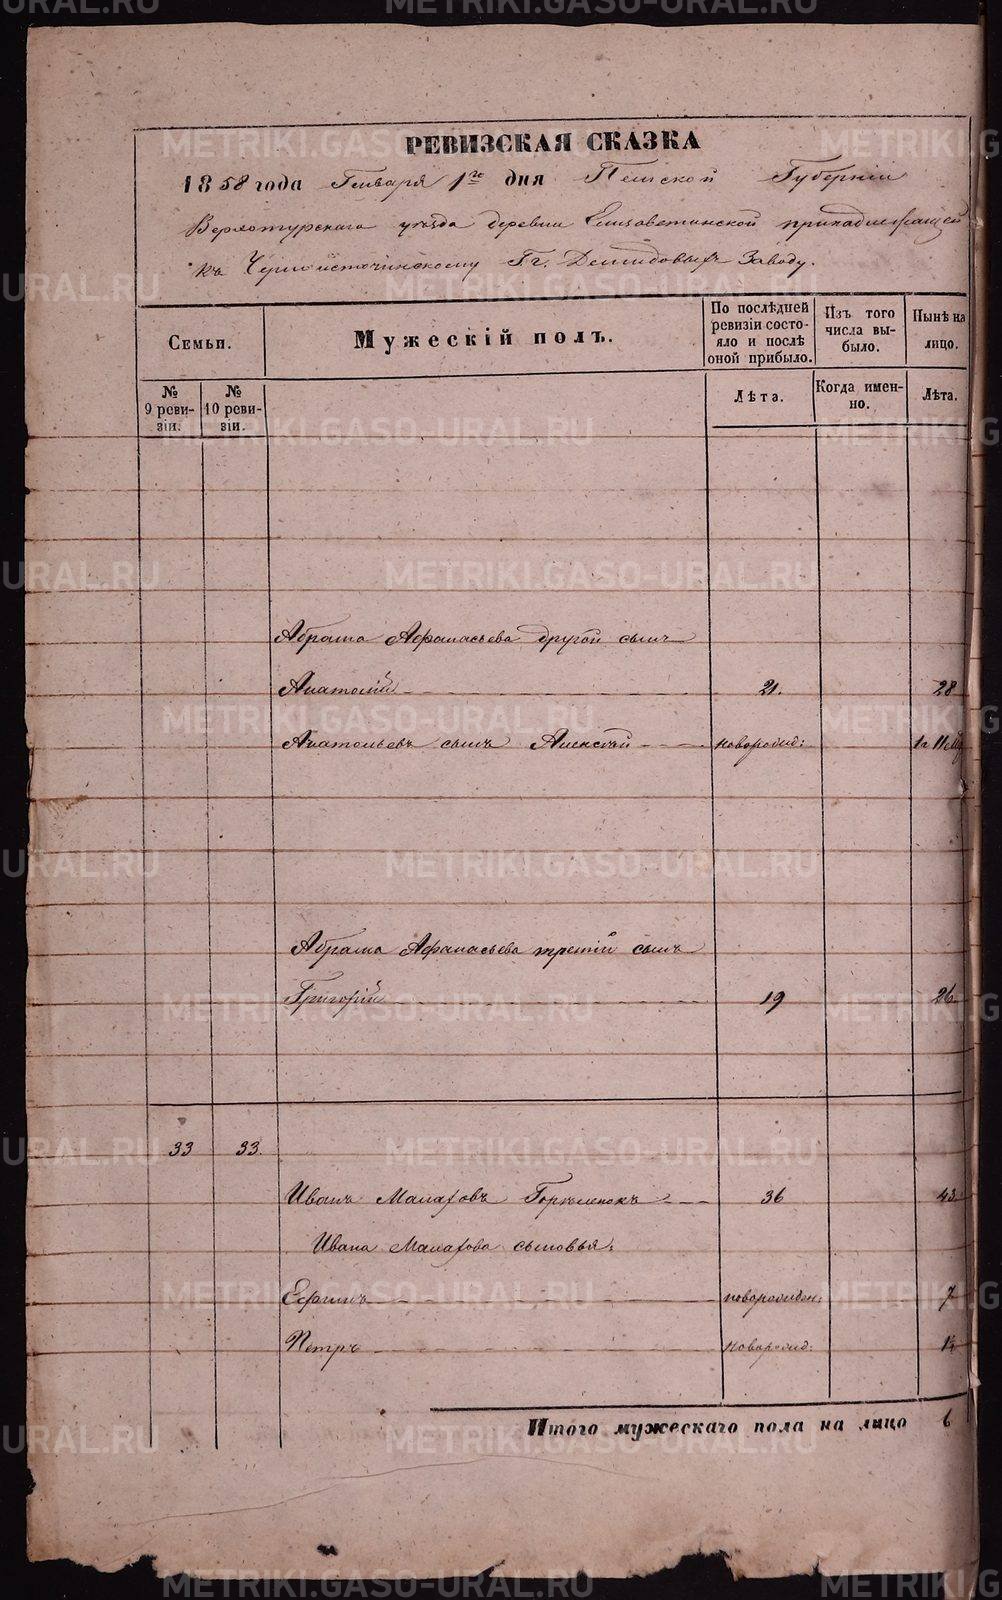 РЕВИЗСКАЯ СКАЗКА
1858 года Генваря 1го дня Пермской Губернии
Верхотурскаго уезда деревни Елизаветинской принадлежащей
къ Черноисточинскому Гг. Демидовыхъ Заводу.
Семьи.
Мужескій полъ.
По послѣдней ревизіи состояло и послѣ оной прибыло.
Изъ того числа выбыло.
Нынѣ на лицо.
№ 9 ревизіи.
№ 10 ревизіи.
Лѣта.
Когда именно.
Лѣта.
Абрама Афанасьева другой сынъ
Анатолій 21. 28
Анатольевъ сынъ Алексѣй новорожд: 1г 11 мѣ
Абрама Афанасьева третій сынъ
Григорій 19 26.
33 33.
Иванъ Макаровъ 36 43.
Ивана Макарова сыновья:
Ефимъ новорожден: 7
Петръ новорожд:
Итого мужескаго пола на лицо 6
METRIKI.GASO-URAL.RU